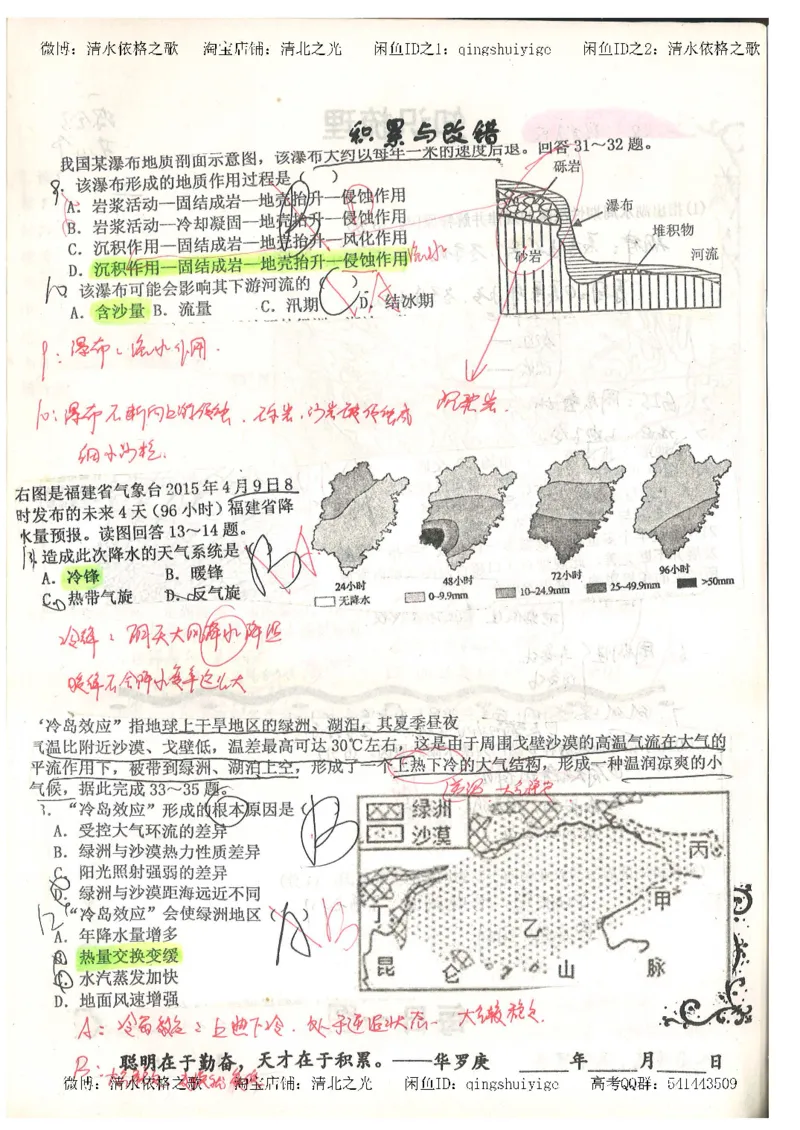 微博：清水依格之歌 淘宝店铺：清北之光 闲鱼ID之1：qingshuiyige 闲鱼ID之2：清水依格之歌
积累与改错
我国某瀑布地质剖面示意图，该瀑布大约以每年一米的速度后退。回答31～32题。
9. 该瀑布形成的地质作用过程是（ ）
A．岩浆活动—固结成岩—地壳抬升—侵蚀作用
B．岩浆活动—冷却凝固—地壳抬升—侵蚀作用
C．沉积作用—固结成岩—地壳抬升—风化作用
D．沉积作用—固结成岩—地壳抬升—侵蚀作用 流水
10 该瀑布可能会影响其下游河流的（ ）
A．含沙量 B．流量 C．汛期 D．结冰期
砾岩
瀑布
堆积物
河流
砂岩
9：瀑布：流水作用．
10：瀑布不断向上的侵蚀，砾岩、砂岩被侵蚀成
细小沙粒．
沉积岩．
右图是福建省气象台2015年4月9日8
时发布的未来4天（96小时）福建省降
水量预报。读图回答13～14题。
13. 造成此次降水的天气系统是
A．冷锋 B．暖锋
C．热带气旋 D．反气旋
24小时 48小时 72小时 96小时
无降水 0~9.9mm 10~24.9mm 25~49.9mm >50mm
冷锋：阴天大风降水降温
暖锋不会降水这么大
“冷岛效应”指地球上干旱地区的绿洲、湖泊，其夏季昼夜
气温比附近沙漠、戈壁低，温差最高可达30℃左右，这是由于周围戈壁沙漠的高温气流在大气的
平流作用下，被带到绿洲、湖泊上空，形成了一个上热下冷的大气结构，形成一种温润凉爽的小
气候，据此完成33～35题。
“冷岛效应”形成的根本原因是（
A．受控大气环流的差异
B．绿洲与沙漠热力性质差异
C．阳光照射强弱的差异
D．绿洲与沙漠距海远近不同
12 “冷岛效应”会使绿洲地区（ ）
A．年降水量增多
B．热量交换变缓
C．水汽蒸发加快
D．地面风速增强
绿洲
沙漠
丙
甲
丁
乙
昆 仑 山 脉
A：上热下冷．处于逆温状态
B：
聪明在于勤奋，天才在于积累。——华罗庚 年 月 日
微博：清水依格之歌 淘宝店铺：清北之光 闲鱼ID：qingshuiyige 高考QQ群：541443509